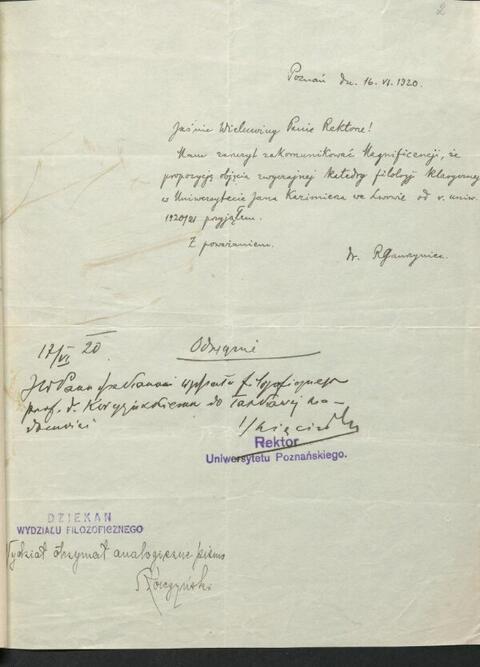 2
Poznań dn. 16. VI. 1920.
Jaśnie Wielmożny Panie Rektorze!
Mam zaszczyt zakomunikować Magnificencji, że
propozycję objęcia zwyczajnej Katedry filologji klasycznej
w Uniwersytecie Jana Kazimierza we Lwowie od r. uniw.
1920/21 przyjąłem.
Z poważaniem.
dr. RGanszyniec
17/VI 20
Odwrotnie
JWPanu Dziekanowi wydziału filozoficznego
prof. dr. do łaskawej wia-
domości
Rektor
Uniwersytetu Poznańskiego.
DZIEKAN
WYDZIAŁU FILOZOFICZNEGO
Wydział otrzymał analogiczne pismo